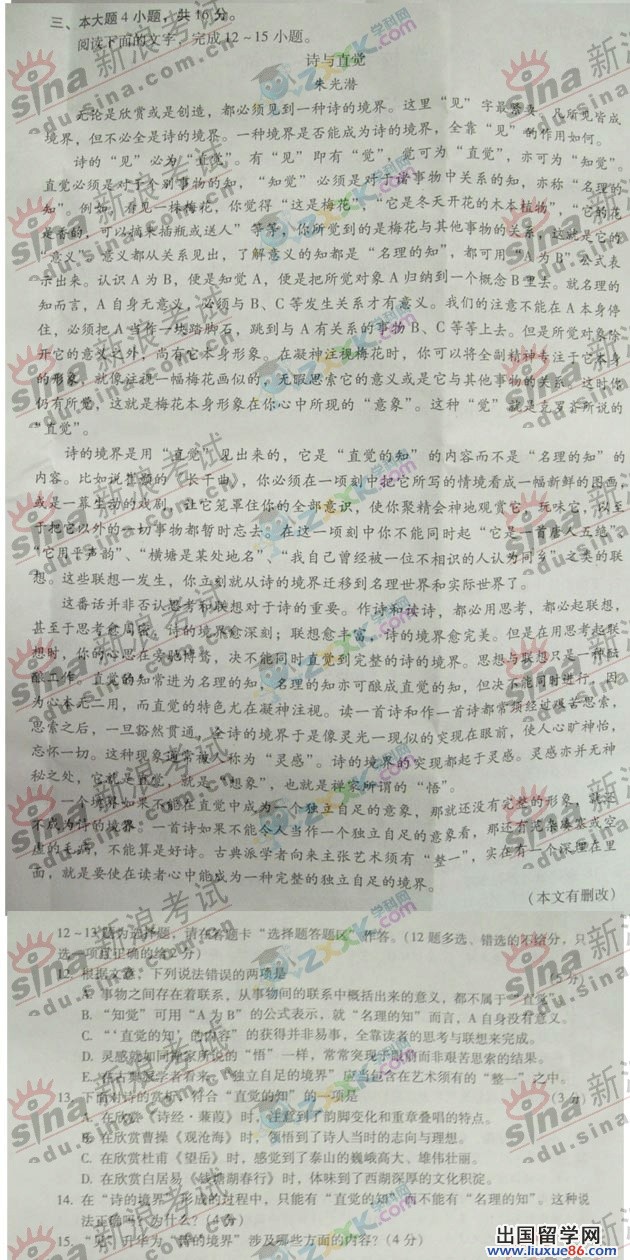 三、本大题4小题，共16分。
阅读下面的文字，完成12～15小题。
诗与直觉
朱光潜
无论是欣赏或是创造，都必须见到一种诗的境界。这里“见”字最紧要。凡所见皆成
境界，但不必全是诗的境界。一种境界是否能成为诗的境界，全靠“见”的作用如何。
诗的“见”必为“直觉”。有“见”即有“觉”，觉可为“直觉”，亦可为“知觉”。
直觉必须是对于个别事物的知，“知觉”必须是对于诸事物中关系的知，亦称“名理的
知”。例如，看见一株梅花，你觉得“这是梅花”，“它是冬天开花的木本植物”，“它的花
是香的，可以摘来插瓶或送人”等等，你所觉到的是梅花与其他事物的关系，这就是它的
“意义”。意义都从关系见出，了解意义的知都是“名理的知”，都可用“A为B”公式表
示出来。认识A为B，便是知觉A，便是把所觉对象A归纳到一个概念B里去。就名理的
知而言，A自身无意义，必须与B、C等发生关系才有意义。我们的注意不能在A本身停
住，必须把A当作一块踏脚石，跳到与A有关系的事物B、C等等上去。但是所觉对象除
开它的意义之外，尚有它本身形象。在凝神注视梅花时，你可以将全副精神专注于它本身
的形象，就像注视一幅梅花画似的，无暇思索它的意义或是它与其他事物的关系。这时你
仍有所觉，这就是梅花本身形象在你心中所现的“意象”。这种“觉”就是克罗齐所说的
“直觉”。
诗的境界是用“直觉”见出来的，它是“直觉的知”的内容而不是“名理的知”的
内容。比如说崔颢的《长干曲》，你必须在一顷刻中把它所写的情境看成一幅新鲜的图画，
或是一幕生动的戏剧，让它笼罩住你的全部意识，使你聚精会神地观赏它，玩味它，以至
于把它以外的一切事物都暂时忘去。在这一顷刻中你不能同时起“它是一首唐人五绝”、
“它用平声韵”、“横塘是某处地名”、“我自己曾经被一位不相识的人认为同乡”之类的联
想。这些联想一发生，你立刻就从诗的境界迁移到名理世界和实际世界了。
这番话并非否认思考和联想对于诗的重要。作诗和读诗，都必用思考，都必起联想，
甚至于思考愈周密，诗的境界愈深刻；联想愈丰富，诗的境界愈完美。但是在用思考起联
想时，你的心思在旁驰博骛，决不能同时直觉到完整的诗的境界。思想与联想只是一种酝
酿工作。直觉的知常进为名理的知，名理的知亦可酿成直觉的知，但决不能同时进行，因
为心本无二用，而直觉的特色尤在凝神注视。读一首诗和作一首诗都常须经过艰苦思索，
思索之后，一旦豁然贯通，全诗的境界于是像灵光一现似的突现在眼前，使人心旷神怡，
忘怀一切。这种现象通常被人称为“灵感”。诗的境界的突现都起于灵感。灵感亦并无神
秘之处，它就是直觉，就是“想象”，也就是禅家所谓的“悟”。
一个境界如果不能在直觉中成为一个独立自足的意象，那就还没有完整的形象，就还
不成为诗的境界。一首诗如果不能令人当作一个独立自足的意象看，那还有芜杂凑塞或空
虚的毛病，不能算是好诗。古典派学者向来主张艺术须有“整一”，实在有一个深理在里
面，就是要使在读者心中能成为一种完整的独立自足的境界。
（本文有删改）
12～13题为选择题，请在答题卡“选择题答题区”作答。（12题多选、错选的不给分，只
选一项且正确的给2分）
12. 根据文意，下列说法错误的两项是 （5分）
A. 事物之间存在着联系，从事物间的联系中概括出来的意义，都不属于“直觉”。
B. “知觉”可用“A为B”的公式表示，就“名理的知”而言，A自身没有意义。
C. “‘直觉的知’的内容”的获得并非易事，全靠读者的思考与联想来完成。
D. 灵感就如同禅家所说的“悟”一样，常常突现于眼前而非艰苦思索的结果。
E. 在古典派学者看来，“独立自足的境界”应当包含在艺术须有的“整一”之中。
13. 下面对诗的赏析，符合“直觉的知”的一项是 （3分）
A. 在欣赏《诗经·蒹葭》时，注意到了韵脚变化和重章叠唱的特点。
B. 在欣赏曹操《观沧海》时，领悟到了诗人当时的志向与理想。
C. 在欣赏杜甫《望岳》时，感觉到了泰山的巍峨高大、雄伟壮丽。
D. 在欣赏白居易《钱塘湖春行》时，体味到了西湖深厚的文化积淀。
14. 在“诗的境界”形成的过程中，只能有“直觉的知”而不能有“名理的知”。这种说
法正确吗？为什么？（4分）
15. “见”升华为“诗的境界”涉及哪些方面的内容？（4分）
sina 新浪考试
edu.sina.com.cn
ZXXK.COM 学科网
出国留学网
www.liuxue86.com